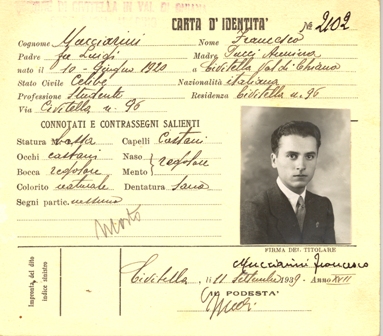 DI CIVITELLA IN VAL DI CHIANA
CARTA D'IDENTITA' № 2102
Cognome Mucciarini Nome Francesco
Padre fu Luigi Madre Pucci
nato il 10 Giugno 1920 a Civitella Val di Chiana
Stato Civile Celibe Nazionalità italiana
Professione Studente Residenza Civitella n. 96
Via Civitella n. 96
CONNOTATI E CONTRASSEGNI SALIENTI
Statura bassa Capelli Castani
Occhi castani Naso regolare
Bocca regolare Mento
Colorito naturale Dentatura sana
Segni partic. nessuno
Morto
FIRMA DEL TITOLARE
Mucciarini Francesco
Civitella li 11 Settembre 1939 - Anno XVII
IL PODESTÀ
Impronta del dito
indice sinistro